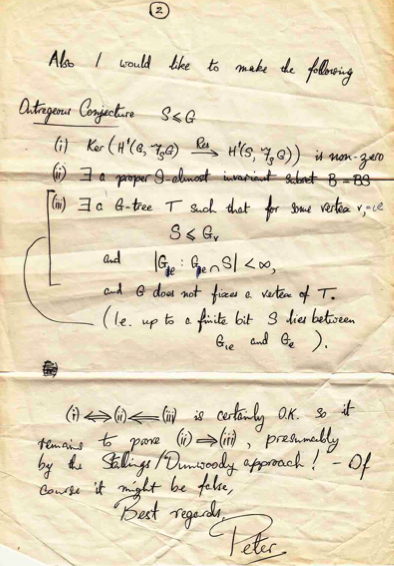 2
Also I would like to make the following
Outrageous Conjecture S ≤ G
(i) Ker (H¹(G, 𝓕ₛG) Res→ H¹(S, 𝓕ₛG)) is non-zero
(ii) ∃ a proper S-almost invariant subset B = BS
(iii) ∃ a G-tree T such that for some vertex v, =ιe
S ≤ Gᵥ
and |Gιe : Gιe ∩ S| < ∞,
and G does not fixes a vertex of T.
(Ie. up to a finite bit S lies between
Gιe and Ge ).
(i) ⟺ (ii) ⟸ (iii) is certainly O.K. so it
remains to prove (ii) ⟹ (iii), presumably
by the Stallings/Dunwoody approach! – Of
course it might be false,
Best regards,
Peter